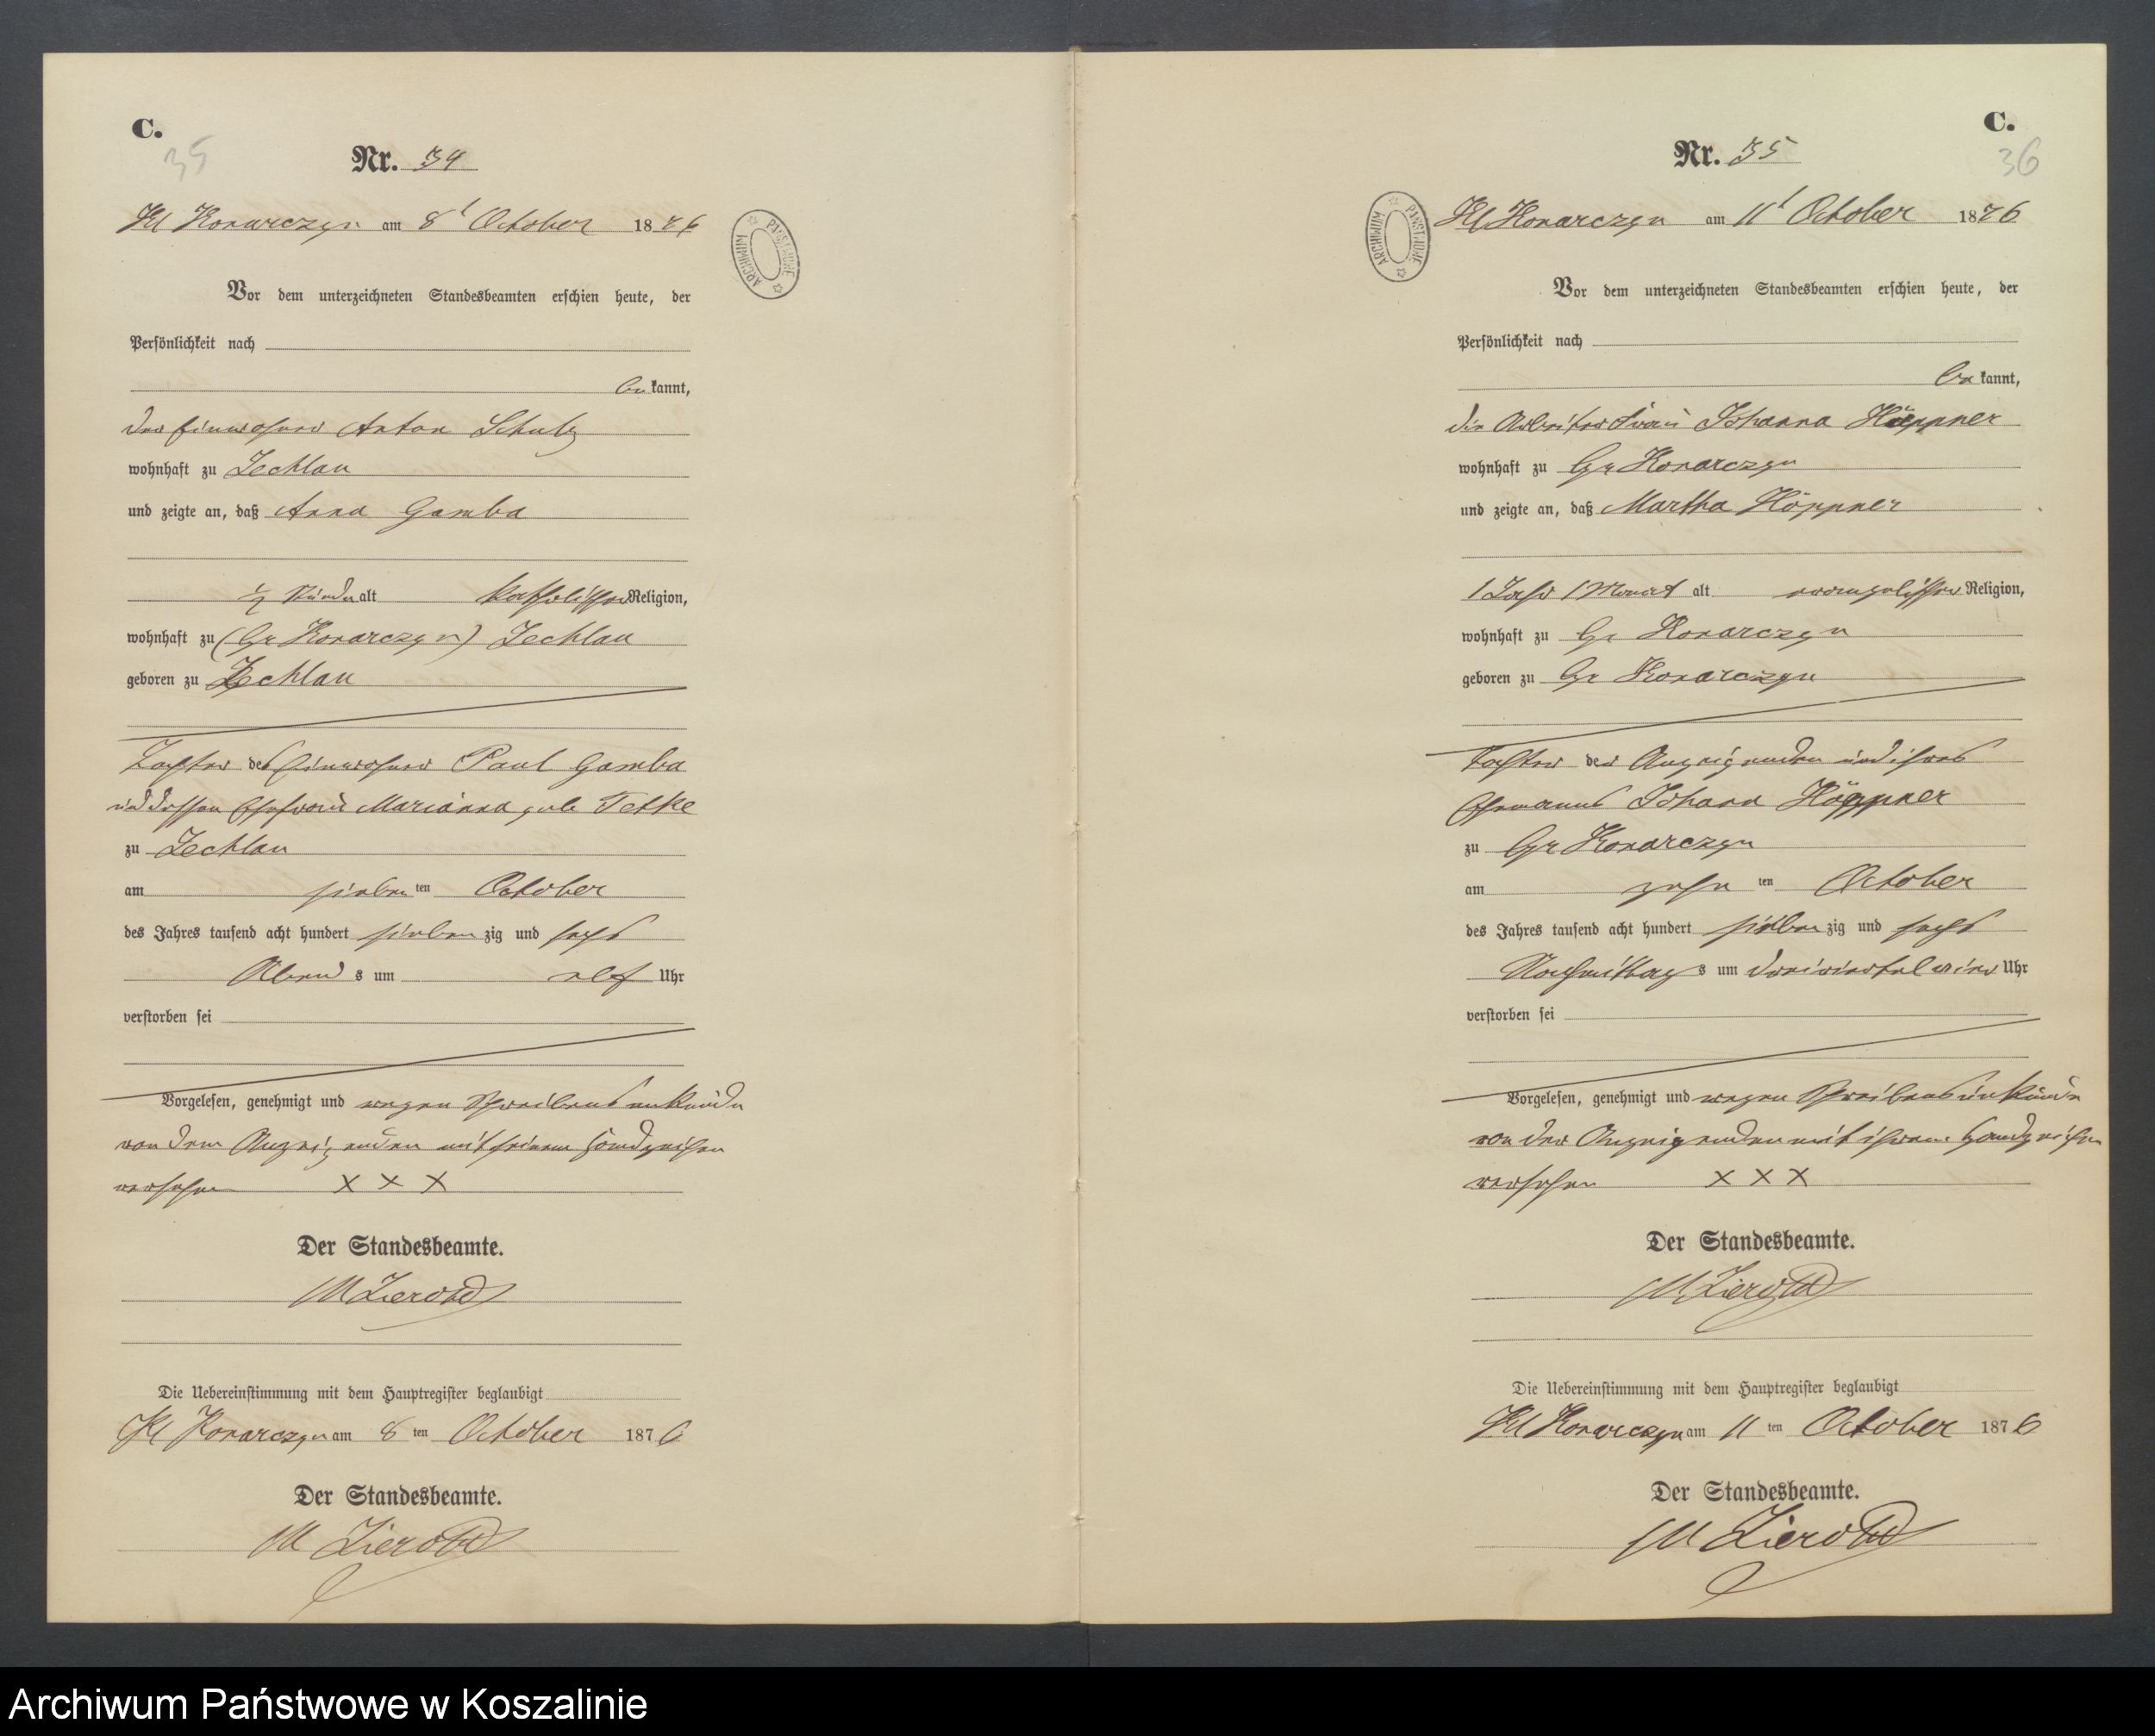 C.
35
Nr. 34
Kl Konarczyn am 8t October 1876
ARCHIWUM PAŃSTWOWE
Vor dem unterzeichneten Standesbeamten erschien heute, der
Persönlichkeit nach
bekannt,
der Einwohner Anton Schulz
wohnhaft zu Zechlau
und zeigte an, daß Anna Gamba
½ Stunde alt katholischer Religion,
wohnhaft zu (Gr Konarczyn) Zechlau
geboren zu Zechlau
Tochter des Einwohner Paul Gamba
und dessen Ehefrau Marianna geb Tetke
zu Zechlau
am sieben ten October
des Jahres tausend acht hundert sieben zig und sechs
Abend s um elf Uhr
verstorben sei
Vorgelesen, genehmigt und wegen Schreibensunkunde
von dem Anzeigenden mit seinem Handzeichen
versehen X X X
Der Standesbeamte.
M Zierold
Die Uebereinstimmung mit dem Hauptregister beglaubigt
Kl Konarczyn am 8 ten October 1876
Der Standesbeamte.
M Zierold
C.
36
Nr. 35
ARCHIWUM PAŃSTWOWE
Kl Konarczyn am 11t October 1876
Vor dem unterzeichneten Standesbeamten erschien heute, der
Persönlichkeit nach
bekannt,
die Arbeiterfrau Johanna Höppner
wohnhaft zu Gr Konarczyn
und zeigte an, daß Martha Höppner
1 Jahr 1 Monat alt evangelischer Religion,
wohnhaft zu Gr Konarczyn
geboren zu Gr Konarczyn
Tochter der Anzeigenden und ihres
Ehemanns Johann Höppner
zu Gr Konarczyn
am zehn ten October
des Jahres tausend acht hundert sieben zig und sechs
Nachmittag s um dreiviertel vier Uhr
verstorben sei
Vorgelesen, genehmigt und wegen Schreibensunkunde
von der Anzeigenden mit ihrem Handzeichen
versehen X X X
Der Standesbeamte.
M Zierold
Die Uebereinstimmung mit dem Hauptregister beglaubigt
Kl Konarczyn am 11 ten October 1876
Der Standesbeamte.
M Zierold
Archiwum Państwowe w Koszalinie